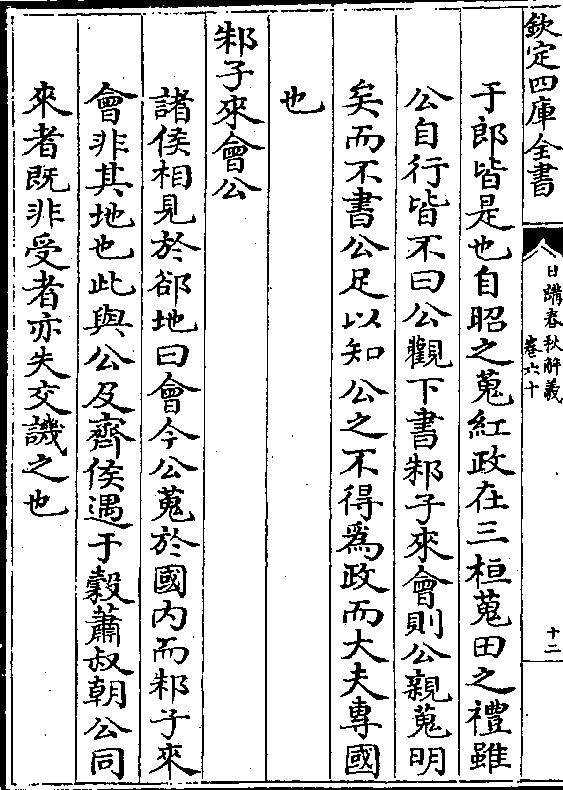 欽定四庫全書
日講春秋解義
卷六十
十二
于郎皆是也自昭之蒐紅政在三桓蒐田之禮雖
公自行皆不曰公觀下書邾子來會則公親蒐明
矣而不書公足以知公之不得為政而大夫專國
也
邾子來會公
諸侯相見於郤地曰會今公蒐於國内而邾子來
會非其地也此與公及齊侯遇于穀蕭叔朝公同
來者既非受者亦失交譏之也